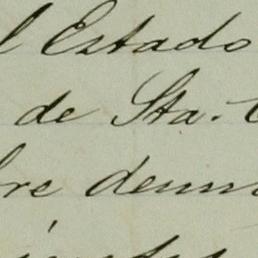 l Estado
de Sta. C
bre denun